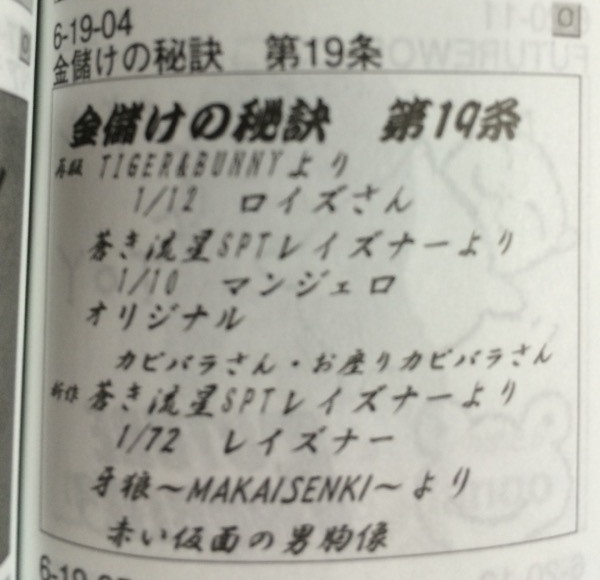 6-19-04
金儲けの秘訣 第19条
金儲けの秘訣 第19条
再販 TIGER&BUNNYより
1/12 ロイズさん
蒼き流星SPTレイズナーより
1/10 マンジェロ
オリジナル
カピバラさん・お座りカピバラさん
新作 蒼き流星SPTレイズナーより
1/72 レイズナー
牙狼～MAKAISENKI～より
赤い仮面の男胸像